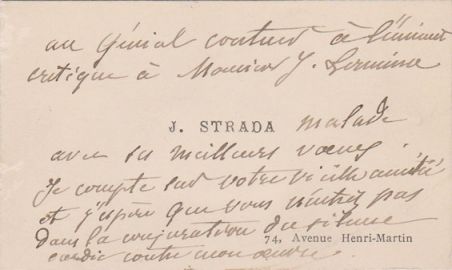 au génial conteur à l'éminent
critique à Monsieur J. Lermina
J. STRADA malade
avec ses meilleurs vœux.
Je compte sur votre vieille amitié
et j'espère que vous n'entrez pas
dans la conjuration du silence
74, Avenue Henri-Martin
contre mon œuvre.